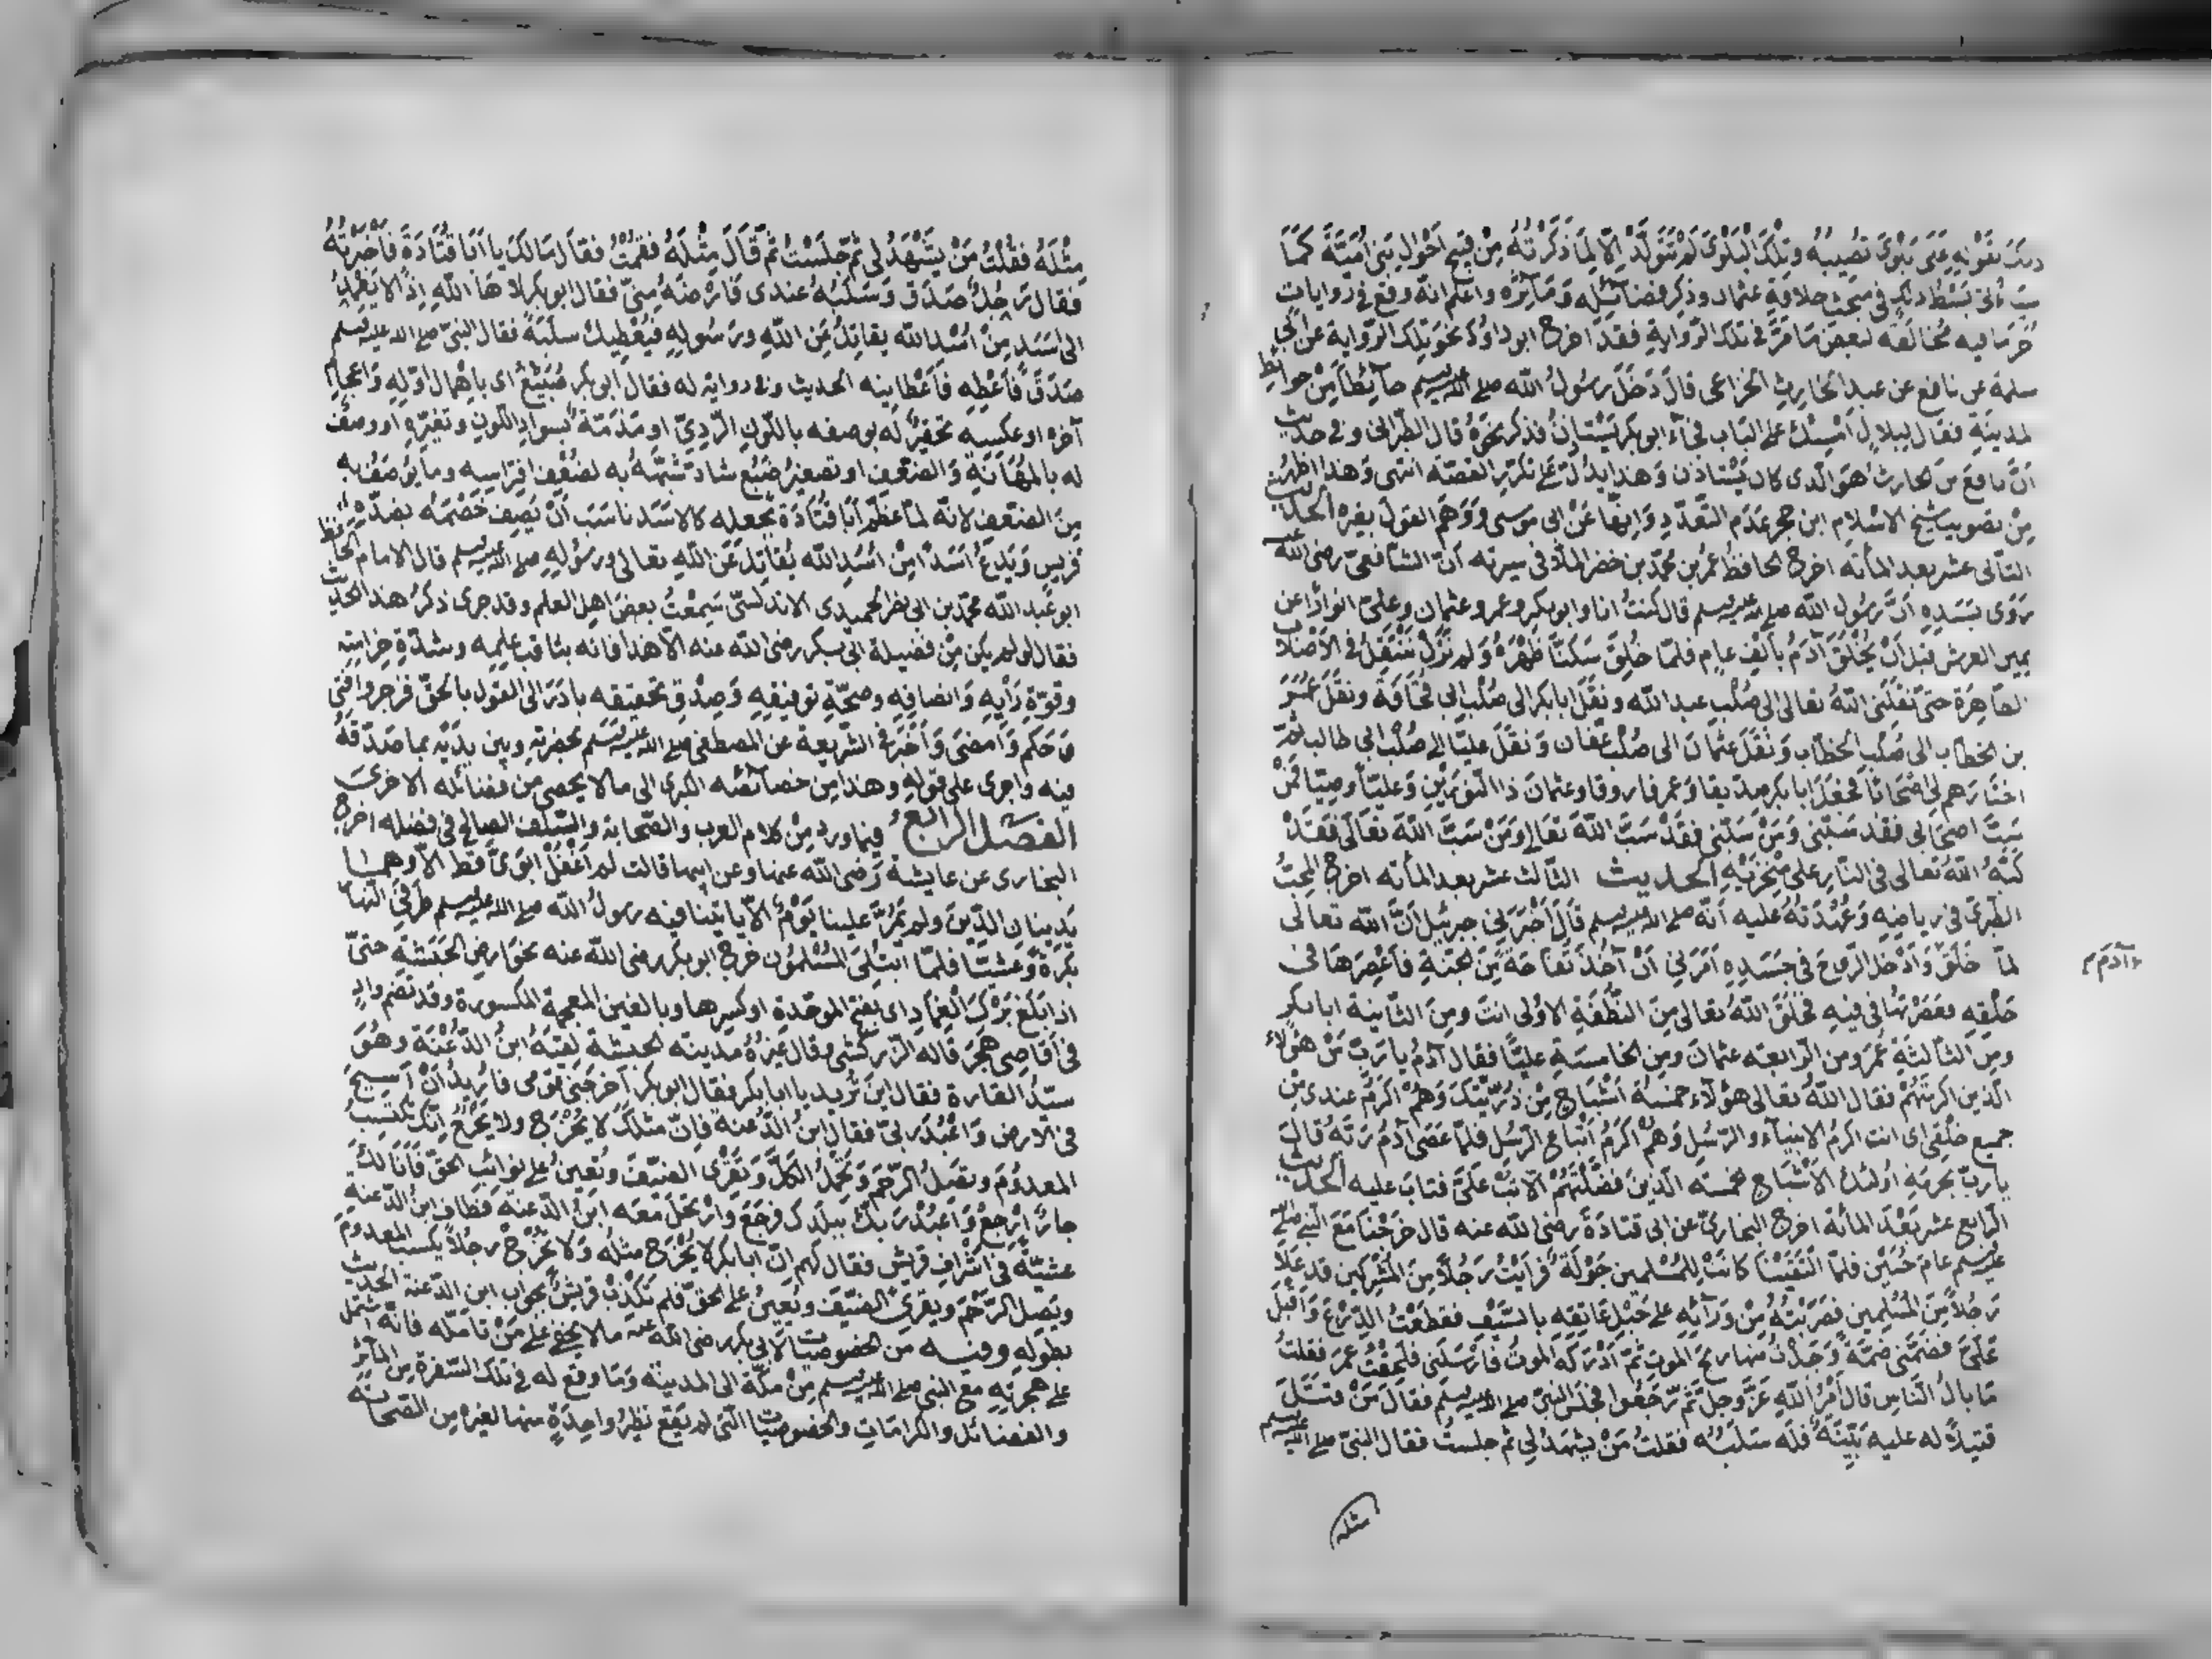 ذلك بقوله على بلوى تصيبه وتلك البلوى لم تتولد الا لما ذكرته من قبيح احوال بني امية كما
بسط ذلك في مبحث خلافة عثمان وذكر فضائله ومآثره واعلم انه وقع في روايات
أخر ما فيه مخالفة لبعض ما مر في تلك الرواية فقد اخرج ابو داود نحو تلك الرواية عن ابي
سلمة عن نافع عن عبد الحارث الخزاعي قال دخل رسول الله صلى الله عليه وسلم حائطا من حوائط
المدينة فقال لبلال امسك على الباب فجاء ابو بكر يستاذن فذكر نحوه قال الطبراني وفي حديث
أن نافع بن الحارث هو الذي كان يستاذن وهذا يدل على تكرير القصة انتهى وهذا اظهر
من تصويب شيخ الاسلام ابن حجر عدم التعدد وانها عن ابي موسى ووهم القول بغيره الحديث
الثاني عشر بعد المائة اخرج الحافظ عمر بن محمد بن خضر الملا في سيرته ان الشافعي رضي الله عنه
روى بسنده أن رسول الله صلى الله عليه وسلم قال كنت انا وابو بكر وعمر وعثمان وعلي انوارا عن
يمين العرش قبل أن يخلق آدم بألف عام فلما خلق سكنا ظهره ولم نزل ننتقل في الاصلاب
الطاهرة حتى نقلني الله تعالى الى صلب عبد الله ونقل ابا بكر الى صلب ابي قحافة ونقل عمر
بن الخطاب الى صلب الخطاب ونقل عثمان الى صلب عفان ونقل عليا الى صلب ابي طالب ثم
اختارهم لي اصحابا فجعل ابا بكر صديقا وعمر فاروقا وعثمان ذا النورين وعليا وصيا فمن
سب اصحابي فقد سبني ومن سبني فقد سب الله تعالى ومن سب الله تعالى فقد
كبه الله تعالى في النار على منخريه الحديث الثالث عشر بعد المائة اخرج المحب
الطبري في رياضه وعهدته عليه انه صلى الله عليه وسلم قال أخبرني جبرئيل ان الله تعالى
لما خلق وادخل الروح في جسده امرني ان آخذ تفاحة من الجنة فاعصرها في
آدم
حلقه فعصرتها في فيه فخلق الله تعالى من النطفة الاولى انت ومن الثانية ابا بكر
ومن الثالثة عمر ومن الرابعة عثمان ومن الخامسة عليا فقال آدم يا رب من هؤلاء
الذين اكرمتهم فقال الله تعالى هؤلاء خمسة اشباح من ذريتك وهم اكرم عندي من
جميع خلقي اي انت اكرم الانبياء والرسل وهم اكرم اتباع الرسل فلما عصى آدم ربه قال
يا رب بحرمة اولئك الاشباح الخمسة الذين فضلتهم الا تبت علي فتاب عليه الحديث
الرابع عشر بعد المائة اخرج البخاري عن ابي قتادة رضي الله عنه قال خرجنا مع النبي صلى الله
عليه وسلم عام حنين فلما التقينا كانت للمسلمين جولة فرايت رجلا من المشركين قد علا
رجلا من المسلمين فضربته من ورائه على حبل عاتقه بالسيف فقطعت الدرع واقبل
علي فضمني ضمة وجدت منها ريح الموت ثم ادركه الموت فارسلني فلحقت عمر فقلت
ما بال الناس قال أمر الله عز وجل ثم رجعوا فجلس النبي صلى الله عليه وسلم فقال من قتل
قتيلا له عليه بينة فله سلبه فقلت من يشهد لي ثم جلست فقال النبي صلى الله عليه وسلم
مثله
مثله فقلت من يشهد لي ثم جلست ثم قال مثله فقمت فقال مالك يا ابا قتادة فاخبرته
فقال رجل صدق وسلبه عندي فارضه مني فقال ابو بكر لاها الله اذا لا يعمد
الى اسد من اسد الله يقاتل عن الله ورسوله فيعطيك سلبه فقال النبي صلى الله عليه وسلم
صدق فاعطه فاعطانيه الحديث وفي رواية له فقال ابو بكر اضيبع اي باهمال اوله واعجام
آخره او عكسه تحقير له بوصفه باللون الردي او مذمة بسواد اللون وتغيره او وصف
له بالمهانة والضعف او تصغير ضبع شاذ شبهه به لضعف افتراسه وما يوصف به
من الضعف لانه لما عظم ابا قتادة بجعله كالاسد ناسب أن يصف خصمه بضده
قريس ويدع اسدا من اسد الله يقاتل عن الله تعالى ورسوله صلى الله عليه وسلم قال الامام الحافظ
ابو عبد الله محمد بن ابي نصر الحميدي الاندلسي سمعت بعض اهل العلم وقد جرى ذكر هذا الحديث
فقال لو لم يكن من فضيلة ابي بكر رضي الله عنه الا هذا فانه بثاقب علمه وشدة حزامته
وقوة رايه وانصافه وصحة توفيقه وصدق تحقيقه بادر الى القول بالحق فزجر وافتى
وحكم وامضى واخبر في الشريعة عن المصطفى صلى الله عليه وسلم بحضرته وبين يديه بما صدقه
فيه واجرى على قوله وهذا من خصائصه الكبرى الى ما لا يحصى من فضائله الاخرى
الفصل الرابع فيما ورد من كلام العرب والصحابة والسلف الصالح في فضله اخرج
البخاري عن عايشة رضي الله عنها وعن ابيها قالت لم اعقل ابوي قط الا وهما
يدينان الدين ولم يمر علينا يوم الا ياتينا فيه رسول الله صلى الله عليه وسلم طرفي النهار
بكرة وعشيا فلما ابتلي المسلمون خرج ابو بكر رضي الله عنه نحو ارض الحبشة حتى
اذا بلغ برك الغماد اي بفتح الموحدة او كسرها وبالغين المعجمة المكسورة وقد تضم واد
في اقاصي هجر قاله الزركشي وقال غيره مدينة الحبشة لقيه ابن الدغنة وهو
سيد القارة فقال اين تريد يا ابا بكر فقال ابو بكر اخرجني قومي فاريد أن اسيح
في الارض واعبد ربي فقال ابن الدغنة فان مثلك لا يخرج ولا يخرج انك تكسب
المعدوم وتصل الرحم وتحمل الكل وتقري الضيف وتعين على نوائب الحق فانا لك
جار ارجع واعبد ربك ببلدك فرجع وارتحل معه ابن الدغنة فطاف ابن الدغنة
عشية في اشراف قريش فقال لهم ان ابا بكر لا يخرج مثله ولا يخرج رجلا يكسب المعدوم
ويصل الرحم ويقري الضيف ويعين على الحق فلم تكذب قريش بجواب ابن الدغنة الحديث
بطوله وفيه من الخصوصيات لابي بكر رضي الله عنه ما لا يخفى على من تامله فانه اشتمل
على هجرته مع النبي صلى الله عليه وسلم من مكة الى المدينة وما وقع له في تلك السفرة من المآثر
والفضائل والكرامات والخصوصيات التي لم يقع نظير واحدة منها لغيره من الصحابة